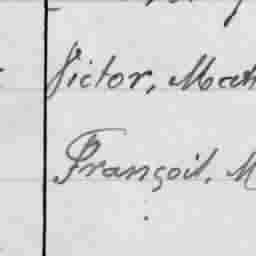 Victor, Math
Françoil, M